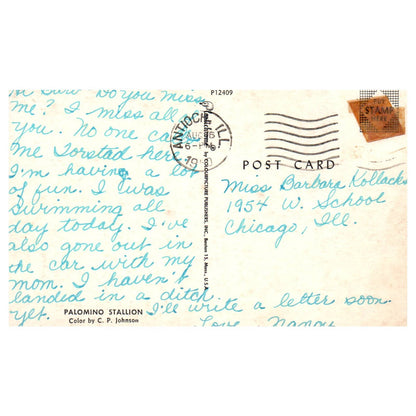 P12409
Do you miss
me? I miss all
you. No one calls
me Torstad here.
I'm having a lot
of fun. I was
swimming all
day today. I've
also gone out in
the car with my
mom. I haven't
landed in a ditch
yet. I'll write a letter soon.
Love, Nancy
PALOMINO STALLION
Color by C. P. Johnson
COLOURPICTURE PUBLISHERS, INC., Boston 15, Mass., U.S.A.
ANTIOCH, ILL.
AUG
POST CARD
STAMP
HERE
Miss Barbara Kollacks
1954 W. School
Chicago, Ill.